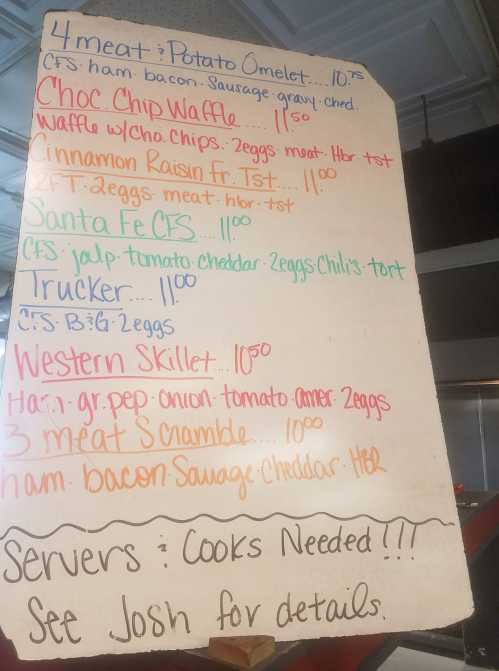 4 meat & Potato Omelet.... 10.75
CFS · ham · bacon · Sausage · gravy · ched.
Choc. Chip Waffle .... 11.50
Waffle w/Cho. Chips. 2eggs · meat · Hbr · tst
Cinnamon Raisin Fr. Tst.... 11.00
2FT · 2eggs · meat · hbr · tst
Santa Fe CFS .... 11.00
CFS · jalp · tomato · cheddar · 2eggs Chili's · tort
Trucker.... 11.00
CFS · B&G · 2eggs
Western Skillet... 10.50
Ham · gr. pep · onion · tomato · amer · 2eggs
3 meat Scramble.... 10.00
ham · bacon · Sausage · Cheddar · HBR
Servers & Cooks Needed!!!
See Josh for details.